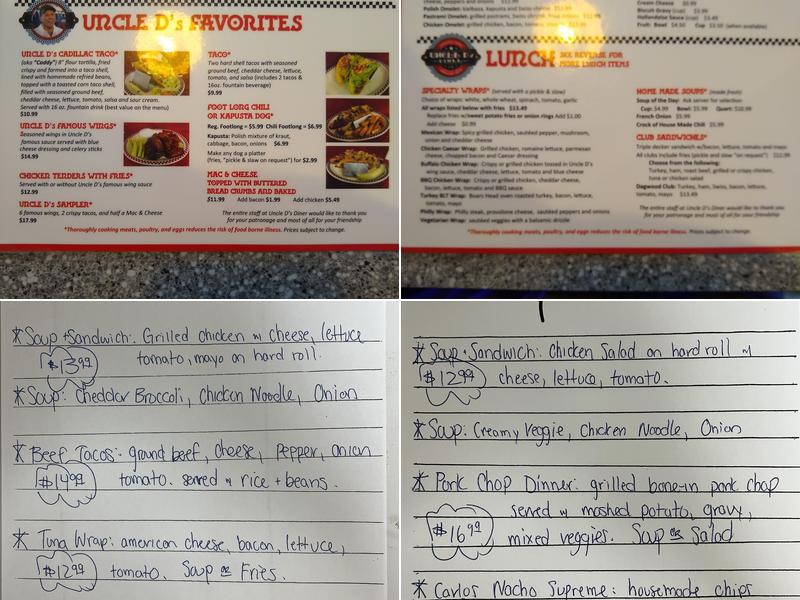 UNCLE D's FAVORITES
UNCLE D's CADILLAC TACO*
(aka "Caddy") 8" flour tortilla, fried
crispy and formed into a taco shell,
lined with homemade refried beans,
topped with a toasted corn taco shell,
filled with seasoned ground beef,
cheddar cheese, lettuce, tomato, salsa and sour cream.
Served with 16 oz. fountain drink (best value on the menu)
$10.99
UNCLE D's FAMOUS WINGS*
Seasoned wings in Uncle D's
famous sauce served with blue
cheese dressing and celery sticks
$14.99
CHICKEN TENDERS WITH FRIES*
Served with or without Uncle D's famous wing sauce
$12.99
UNCLE D's SAMPLER*
6 famous wings, 2 crispy tacos, and half a Mac & Cheese
$17.99
TACO*
Two hard shell tacos with seasoned
ground beef, cheddar cheese, lettuce,
tomato, and salsa (includes 2 tacos &
16oz. fountain beverage)
$9.99
FOOT LONG CHILI
OR KAPUSTA DOG*
Reg. Footlong = $5.99 Chili Footlong = $6.99
Kapusta: Polish mixture of kraut,
cabbage, bacon, onions $6.99
Make any dog a platter
(fries, "pickle & slaw on request") for $2.99
MAC & CHEESE
TOPPED WITH BUTTERED
BREAD CRUMBS AND BAKED
$11.99 Add bacon $1.99 Add chicken $5.49
The entire staff at Uncle D's Diner would like to thank you
for your patronage and most of all for your friendship
*Thoroughly cooking meats, poultry, and eggs reduces the risk of food borne illness. Prices subject to change.
Polish Omelet: kielbasa, kapusta and swiss cheese $12.99
Pastrami Omelet: grilled pastrami, swiss
Chicken Omelet:
Cream Cheese $0.99
Biscuit Gravy (cup) $3.99
Hollandaise Sauce (cup) $3.49
Fruit: Bowl $4.50 Cup $3.50 (when available)
LUNCH SEE REVERSE FOR
MORE LUNCH ITEMS
SPECIALTY WRAPS* (served with a pickle & slaw)
Choice of wraps: white, whole wheat, spinach, tomato, garlic
All wraps listed below with fries $13.49
Replace fries w/sweet potato fries or onion rings Add $1.00
Add cheese $0.99
Mexican Wrap: Spicy grilled chicken, sautéed pepper, mushroom,
onion and cheddar cheese
Chicken Caesar Wrap: Grilled chicken, romaine lettuce, parmesan
cheese, chopped bacon and Caesar dressing
Buffalo Chicken Wrap: Crispy or grilled chicken tossed in Uncle D's
wing sauce, cheddar cheese, lettuce, tomato and blue cheese
BBQ Chicken Wrap: Crispy or grilled chicken, cheddar cheese,
bacon, lettuce, tomato and BBQ sauce
Turkey BLT Wrap: Boars Head oven roasted turkey, bacon, lettuce,
tomato, mayo
Philly Wrap: Philly steak, provolone cheese, sautéed peppers and onions
Vegetarian Wrap: sautéed veggies with a balsamic drizzle
HOME MADE SOUPS* (made fresh)
Soup of the Day: Ask server for selection
Cup: $4.99 Bowl: $5.99 Quart: $10.99
French Onion $5.99
Crock of House Made Chili $5.99
CLUB SANDWICHES*
Triple decker sandwich w/bacon, lettuce, tomato and mayo
All clubs include fries (pickle and slaw "on request") $12.99
Choose from the following:
Turkey, ham, roast beef, grilled or crispy chicken,
tuna or chicken salad
Dagwood Club: Turkey, ham, swiss, bacon, lettuce,
tomato, mayo $13.49
The entire staff at Uncle D's Diner would like to thank you
for your patronage and most of all for your friendship
*Thoroughly cooking meats, poultry, and eggs reduces the risk of food borne illness. Prices subject to change.
* Soup + Sandwich: Grilled chicken w cheese, lettuce
$13.99 tomato, mayo on hard roll.
* Soup: Cheddar Broccoli, Chicken Noodle, Onion
* Beef Tacos: ground beef, cheese, pepper, onion
$14.99 tomato. served w rice + beans.
* Tuna Wrap: american cheese, bacon, lettuce,
$12.99 tomato. Soup or Fries.
* Soup + Sandwich: Chicken Salad on hard roll w
$12.99 cheese, lettuce, tomato.
* Soup: Creamy Veggie, Chicken Noodle, Onion
* Pork Chop Dinner: grilled bone-in pork chop
served w mashed potato, gravy,
$16.99 mixed veggies. Soup or Salad
* Carlos Nacho Supreme: housemade chips